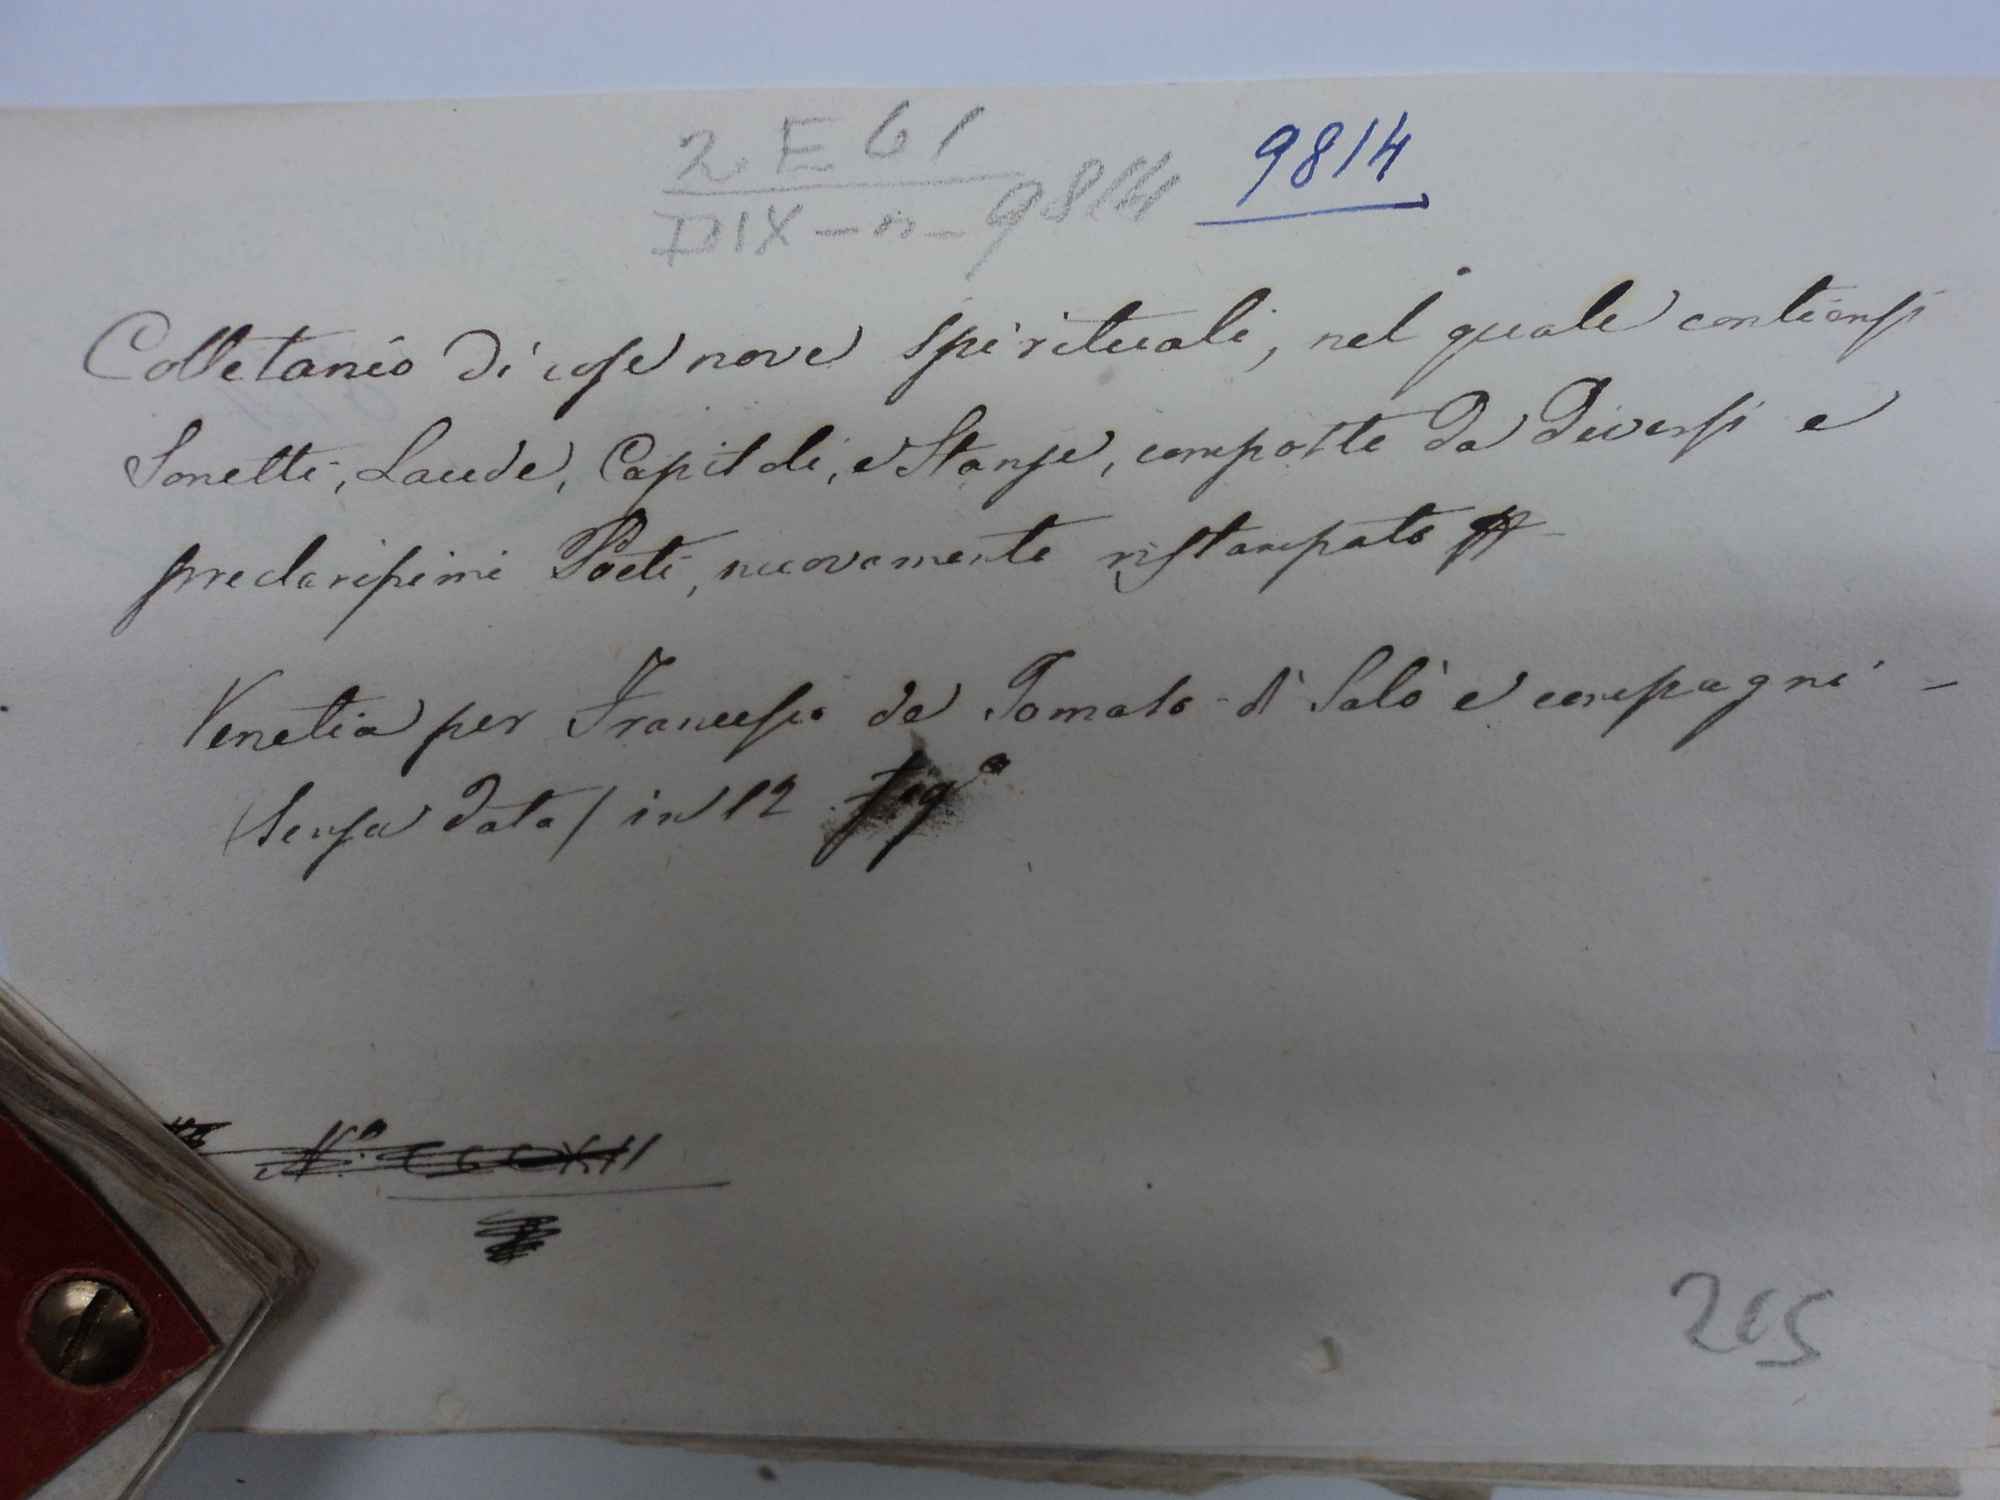 2 E 61
DIX - n - 9814 9814
Colletanio di cose nove spirituali, nel quale contiensi
Sonetti, Laude, Capitoli, e Stanze, composte da Diversi e
preclarissimi Poeti, nuovamente ristampato
Venetia per Francesco de Tomaso di Salò e compagni -
(Senza data) in 12 fig.º
N.º CCCXII
215